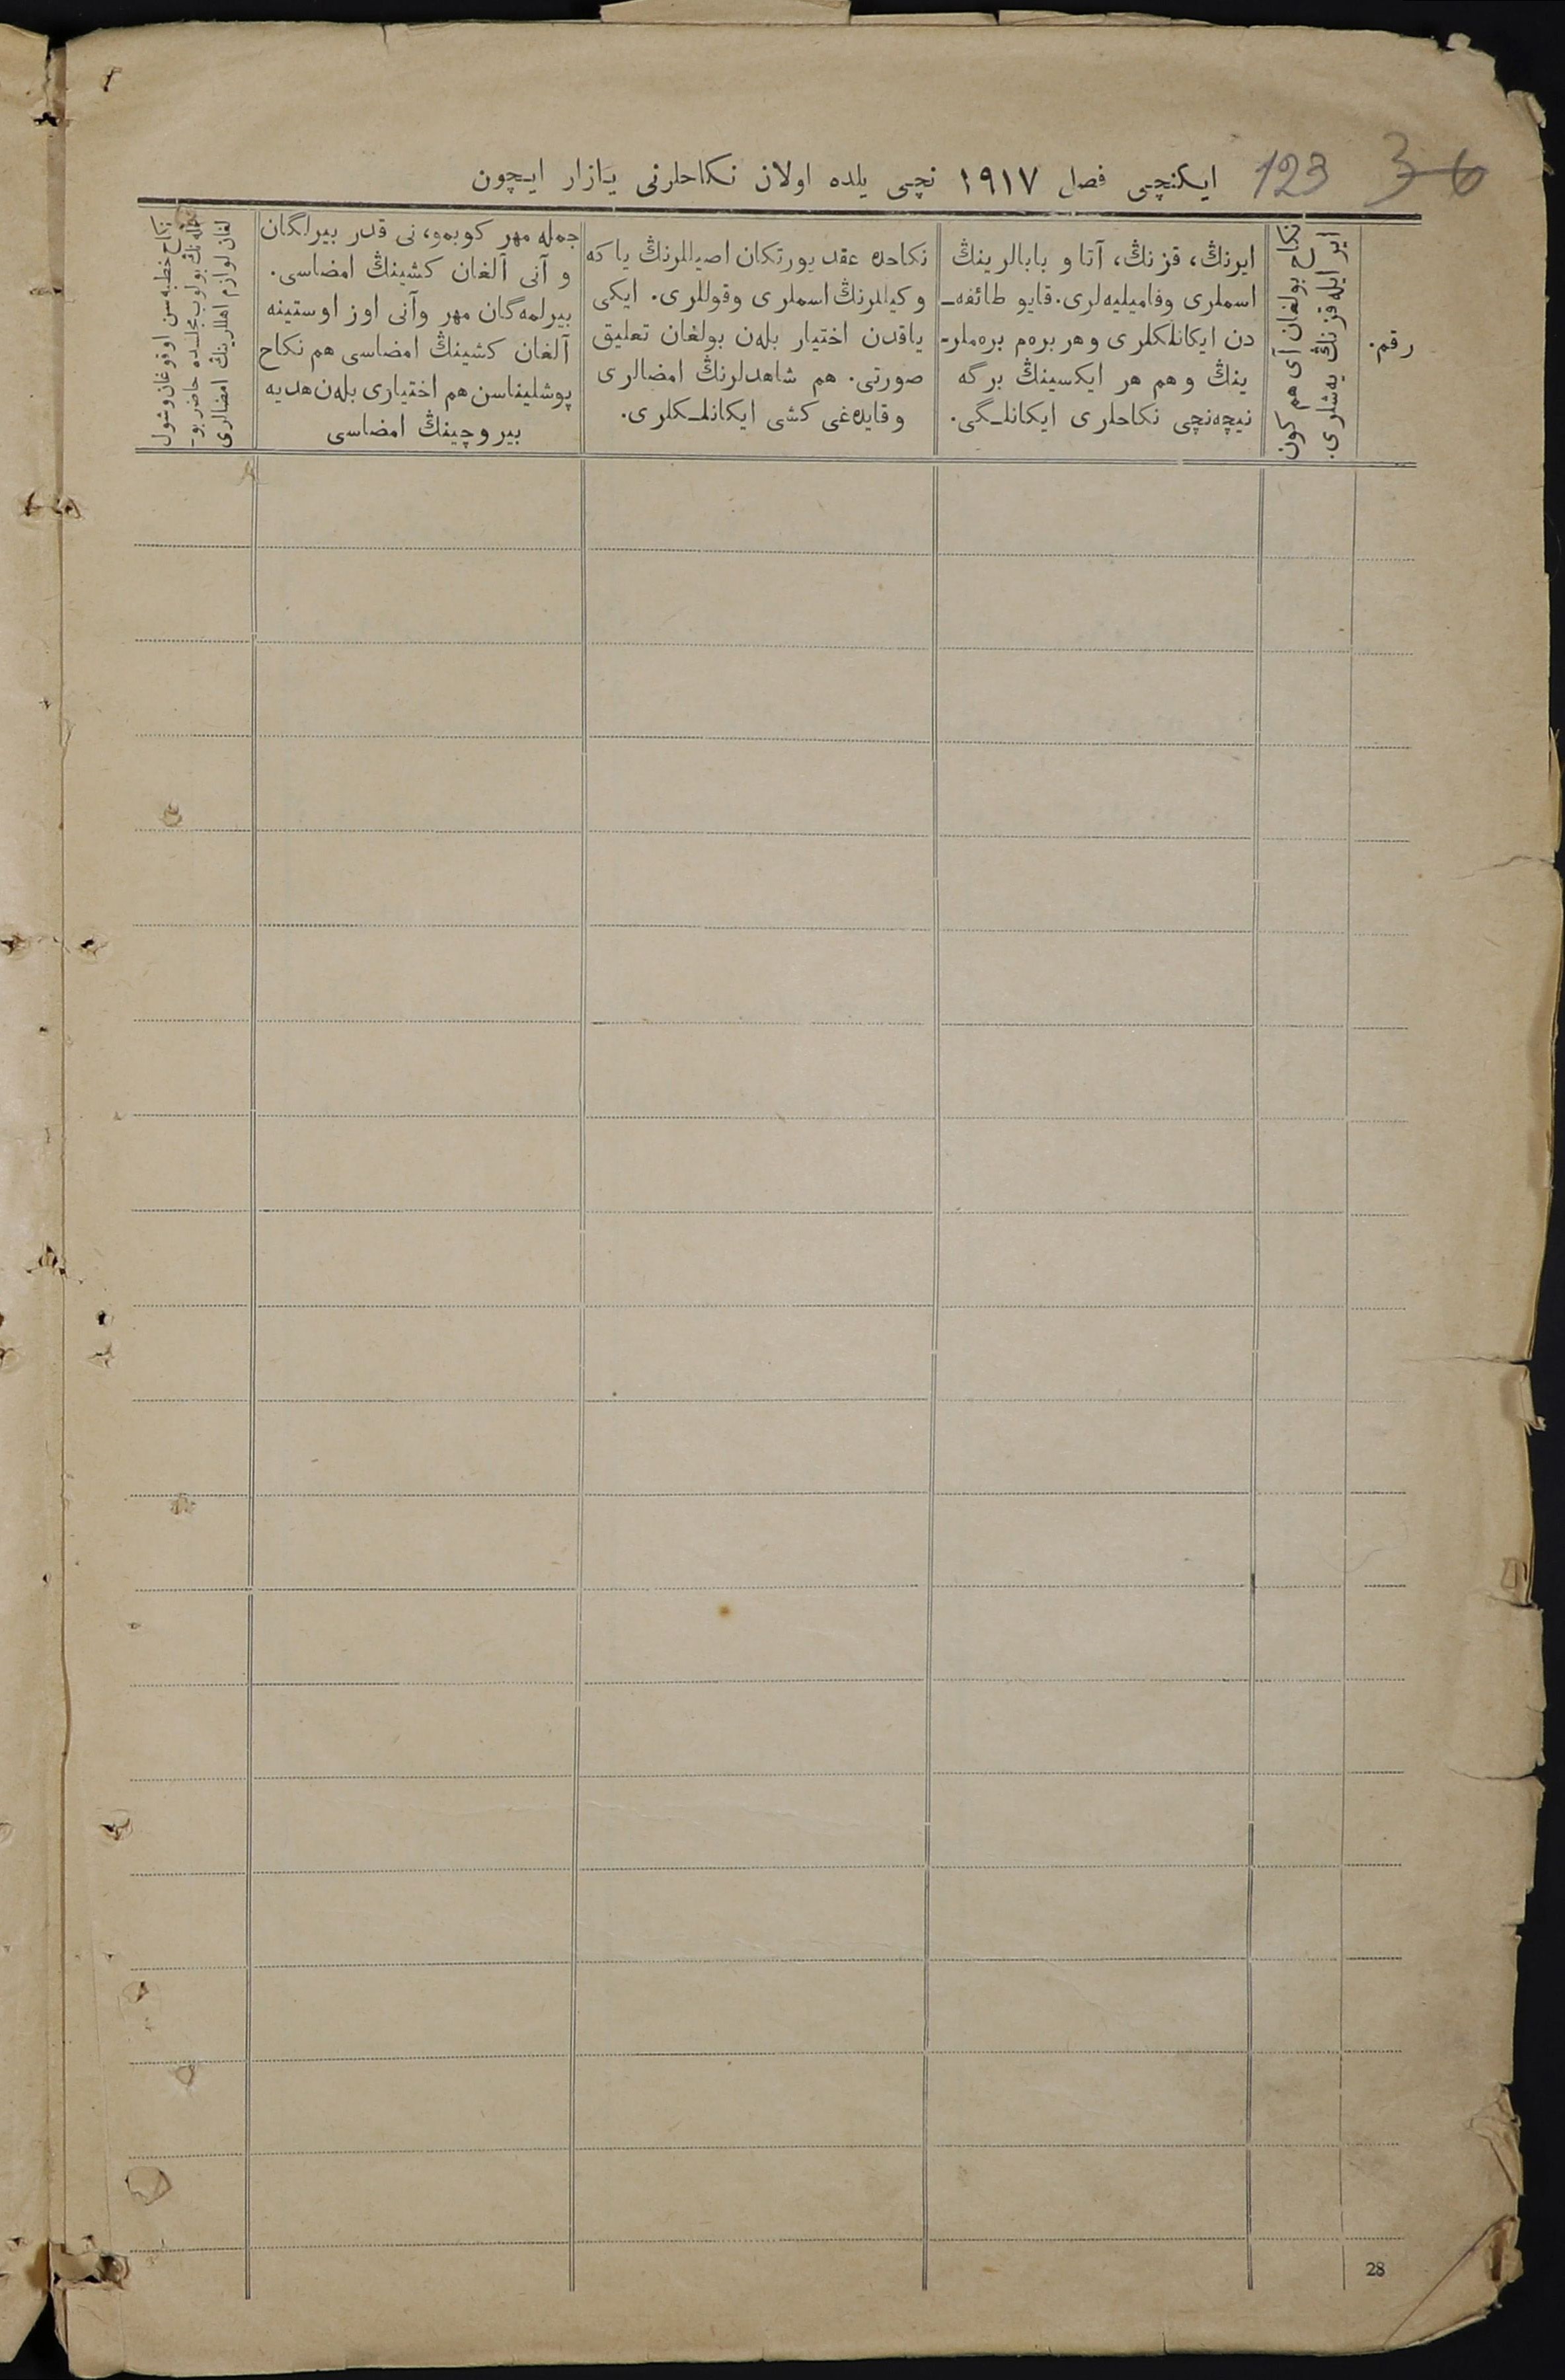 123 36
ایکنچی فصل ۱۹۱۷ نچی یلده اولان نکاحلرنی یازار ایچون
رقم.
نکاح بولغان آی هم کون
ایر ایله قزنڭ یەشلری.
ایرنڭ، قزنڭ، آتا و بابالرینڭ
اسملری وفامیلیەلری. قایو طائفەـ
دن ایکانلکلری وهر برەم برەملرـ
ینڭ وهم هر ایکسینڭ برگە
نیچەنچی نکاحلری ایکانلـگی.
نکاحدە عقد یورتکان اصیللرنڭ یا کە
وکیللرنڭ اسملری وقوللری. ایکی
یاقدن اختیار بلەن بولغان تعلیق
صورتی. هم شاهدلرنڭ امضالری
وقایدەغی کشی ایکانلـکلری.
جملە مهر کوبمو، نی قدر بیرلگان
و آنی آلغان کشینڭ امضاسی.
بیرلمەگان مهر وآنی اوز اوستینە
آلغان کشینڭ امضاسی هم نکاح
پوشلیناسن هم اختیاری بلەن هدیە
بیروچینڭ امضاسی
نکاح خطبەسن اوقوغان وشول
محلەنڭ بولوب مجلـدە حاضر بوـ
لغان لوازم اهللرینڭ امضالری
28